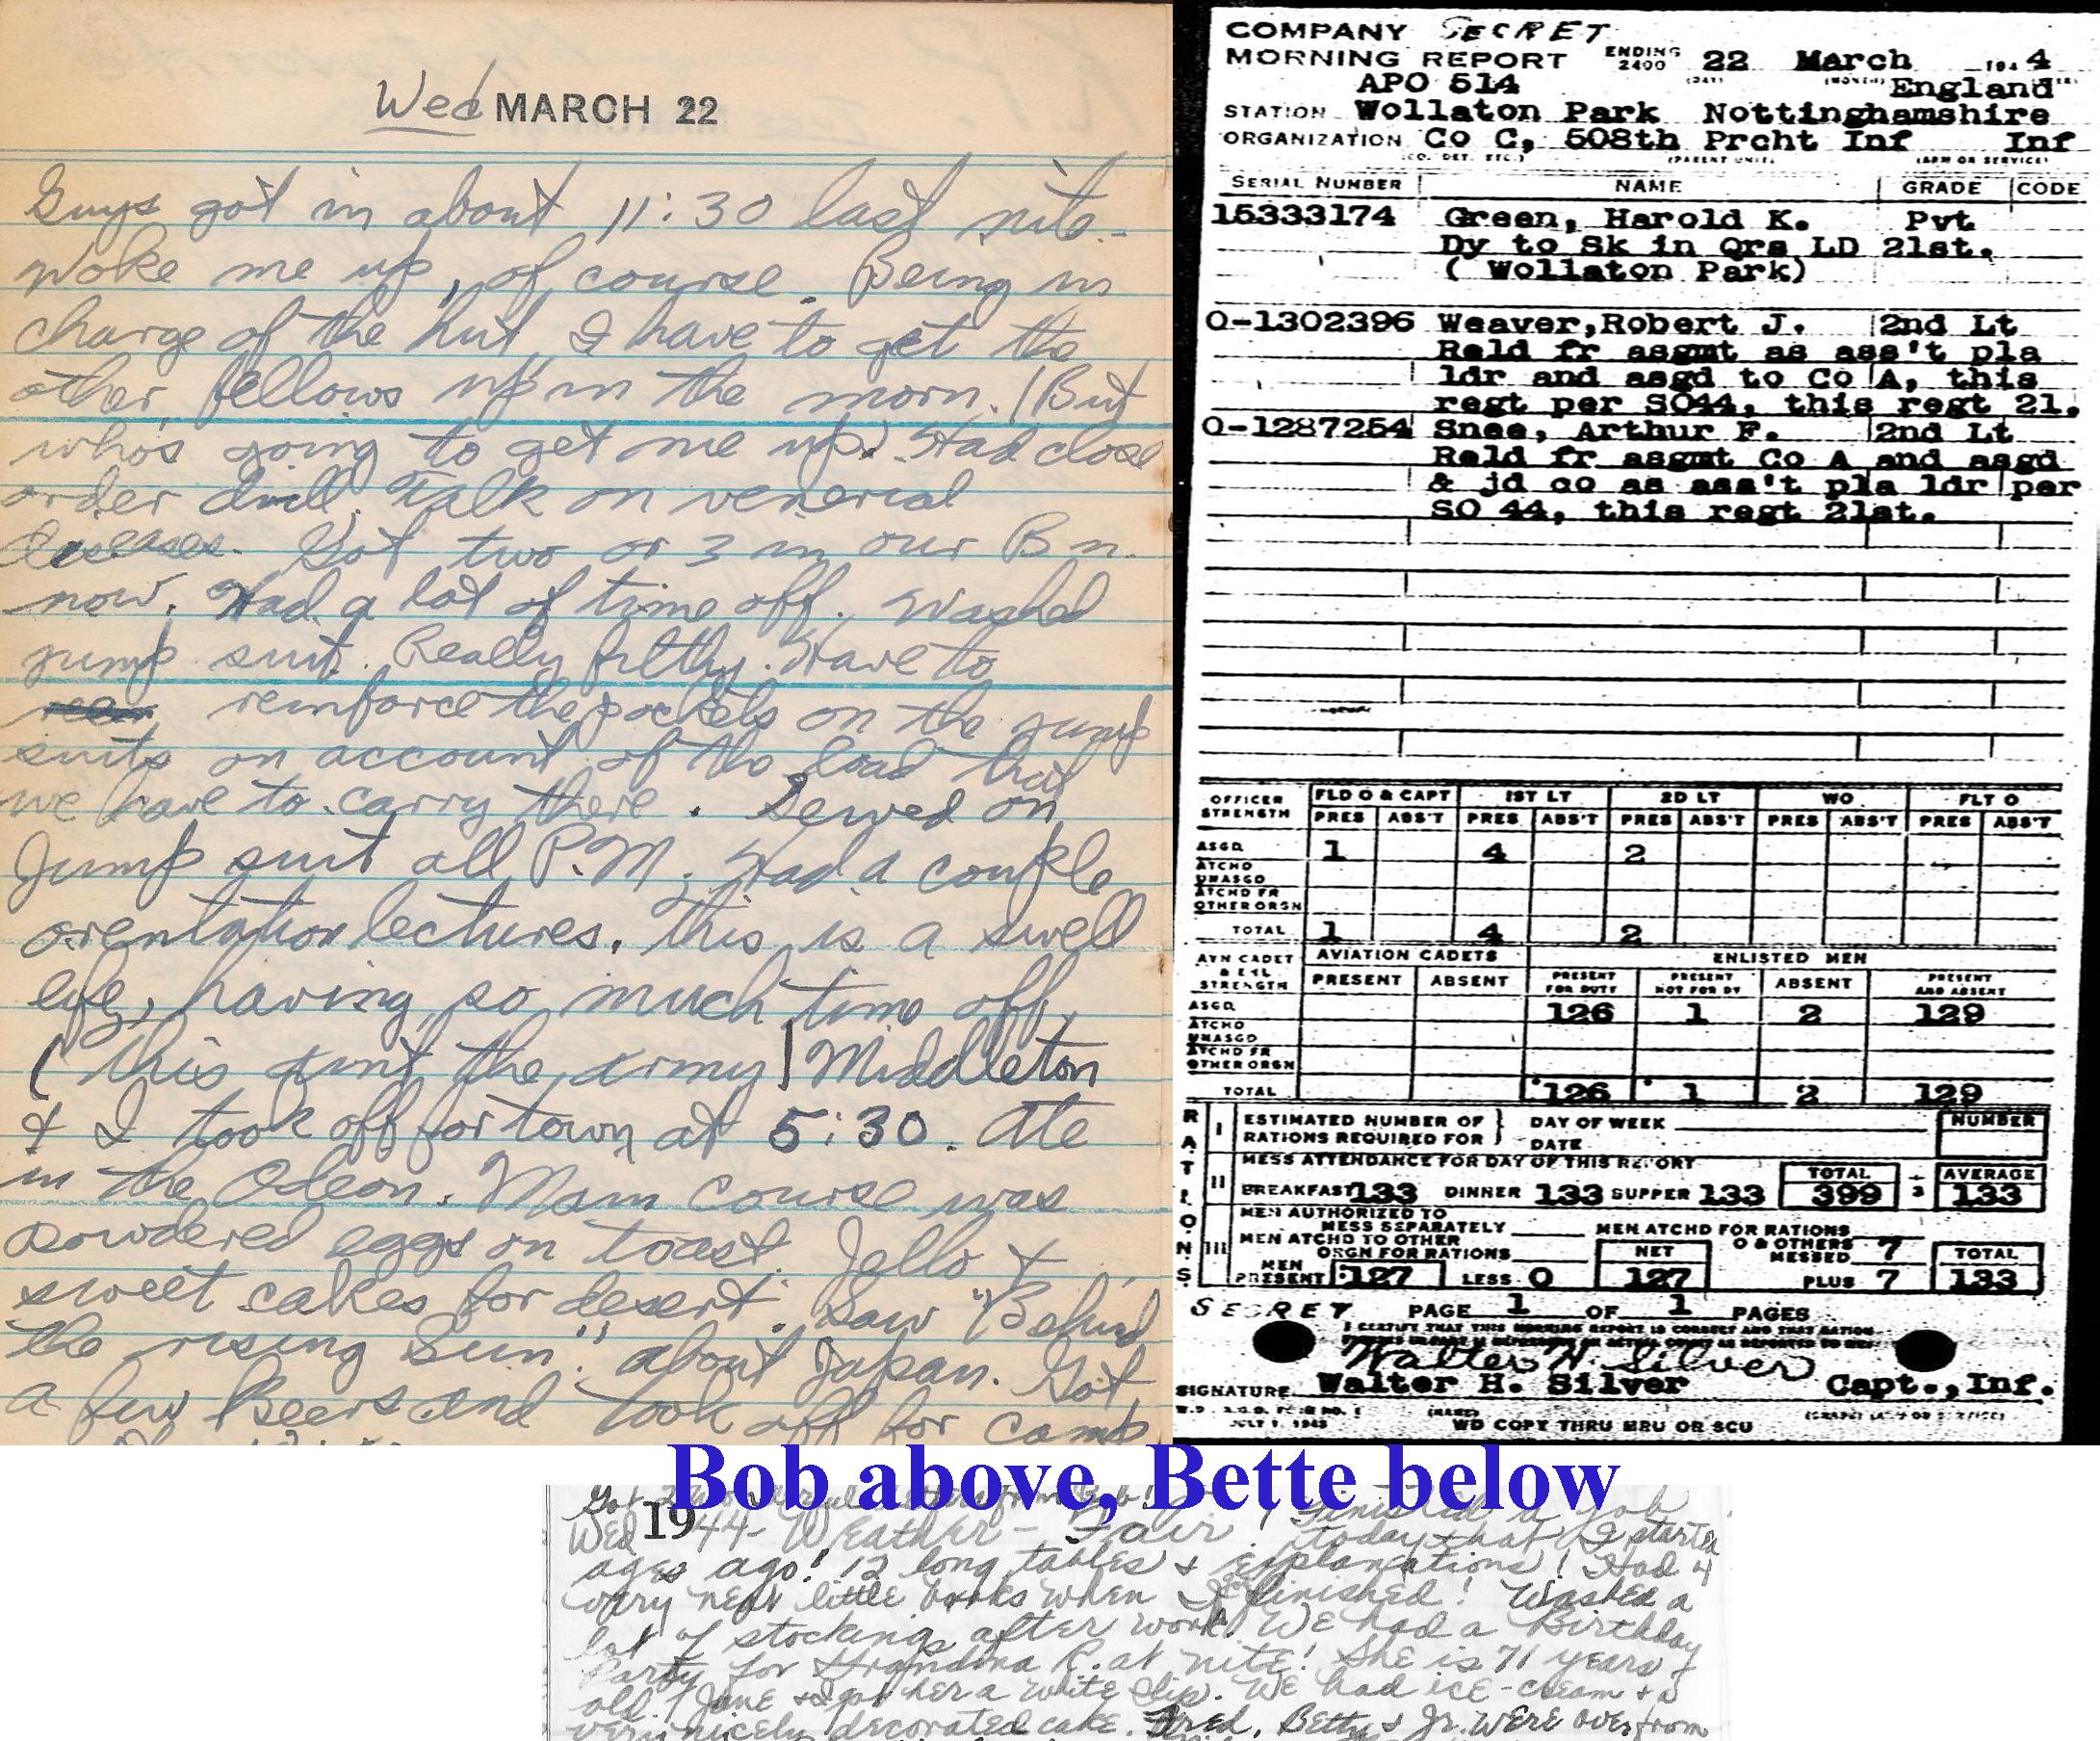 Wed MARCH 22
Guys got in about 11:30 last nite.
Woke me up, of course. Being in
charge of the hut I have to get the
other fellows up in the morn. (But
who's going to get me up) Had close
order drill. Talk on venerial
deseases. Got two or 3 in our Bn.
now. Had a lot of time off. Washed
jump suit. Really filthy. Have to
reinforce the pockets on the jump
suits on account of the load that
we have to carry there. Sewed on
Jump suit all P.M. Had a couple
orentation lectures. this is a swell
life, having so much time off.
(this aint the army) Middleton
& I took off for town at 5:30. Ate
in the Odeon. Main course was
powdered eggs on toast. Jello &
sweet cakes for desert. Saw "Behind
the rising Sun" about Japan. Got
a few Beers and took off for camp
COMPANY SECRET
MORNING REPORT ENDING 2400 22 March 1944
APO 514 England
STATION Wollaton Park Nottinghamshire
ORGANIZATION Co C, 508th Prcht Inf Inf
(CO. DET. ETC.) (PARENT UNIT) (ARM OR SERVICE)
SERIAL NUMBER NAME GRADE CODE
15333174 Green, Harold K. Pvt
Dy to Sk in Qrs LD 21st.
( Wollaton Park)
O-1302396 Weaver, Robert J. 2nd Lt
Reld fr asgmt as ass't pla
ldr and asgd to Co A, this
regt per SO44, this regt 21.
O-1287254 Snee, Arthur F. 2nd Lt
Reld fr asgmt Co A and asgd
& jd co as ass't pla ldr per
SO 44, this regt 21st.
OFFICER STRENGTH FLD O & CAPT 1ST LT 2D LT WO FLT O
PRES ABS'T PRES ABS'T PRES ABS'T PRES ABS'T PRES ABS'T
ASGD 1 4 2
ATCHD
UNASGD
ATCHD FR
OTHER ORGN
TOTAL 1 4 2
AVN CADET & ENL STRENGTH AVIATION CADETS ENLISTED MEN
PRESENT ABSENT PRESENT FOR DUTY PRESENT NOT FOR DY ABSENT PRESENT AND ABSENT
ASGD 126 1 2 129
ATCHD
UNASGD
ATCHD FR
OTHER ORGN
TOTAL 126 1 2 129
RATIONS
I ESTIMATED NUMBER OF RATIONS REQUIRED FOR DAY OF WEEK DATE NUMBER
II MESS ATTENDANCE FOR DAY OF THIS REPORT TOTAL ÷ 3 AVERAGE
BREAKFAST 133 DINNER 133 SUPPER 133 399 133
III MEN AUTHORIZED TO MESS SEPARATELY MEN ATCHD FOR RATIONS
MEN ATCHD TO OTHER ORGN FOR RATIONS NET O & OTHERS MESSED 7 TOTAL
MEN PRESENT 127 LESS 0 127 PLUS 7 133
SECRET PAGE 1 OF 1 PAGES
I CERTIFY THAT THIS MORNING REPORT IS CORRECT AND THAT RATION
Walter H. Silver
SIGNATURE Walter H. Silver Capt., Inf.
JULY 1, 1943 (NAME)
WD COPY THRU MRU OR SCU
Bob above, Bette below
Wed 1944- Weather - Fair! Finished a job
today that I started
ages ago! 12 long tables & explanations! Had 4
very neat little books when I finished! Washed a
lot of stockings after work! We had a Birthday
Party for Grandma R. at nite! She is 71 years
old! June & I got her a white slip. We had ice-cream & a
very nicely decorated cake. Fred, Betty & Jr. were over from